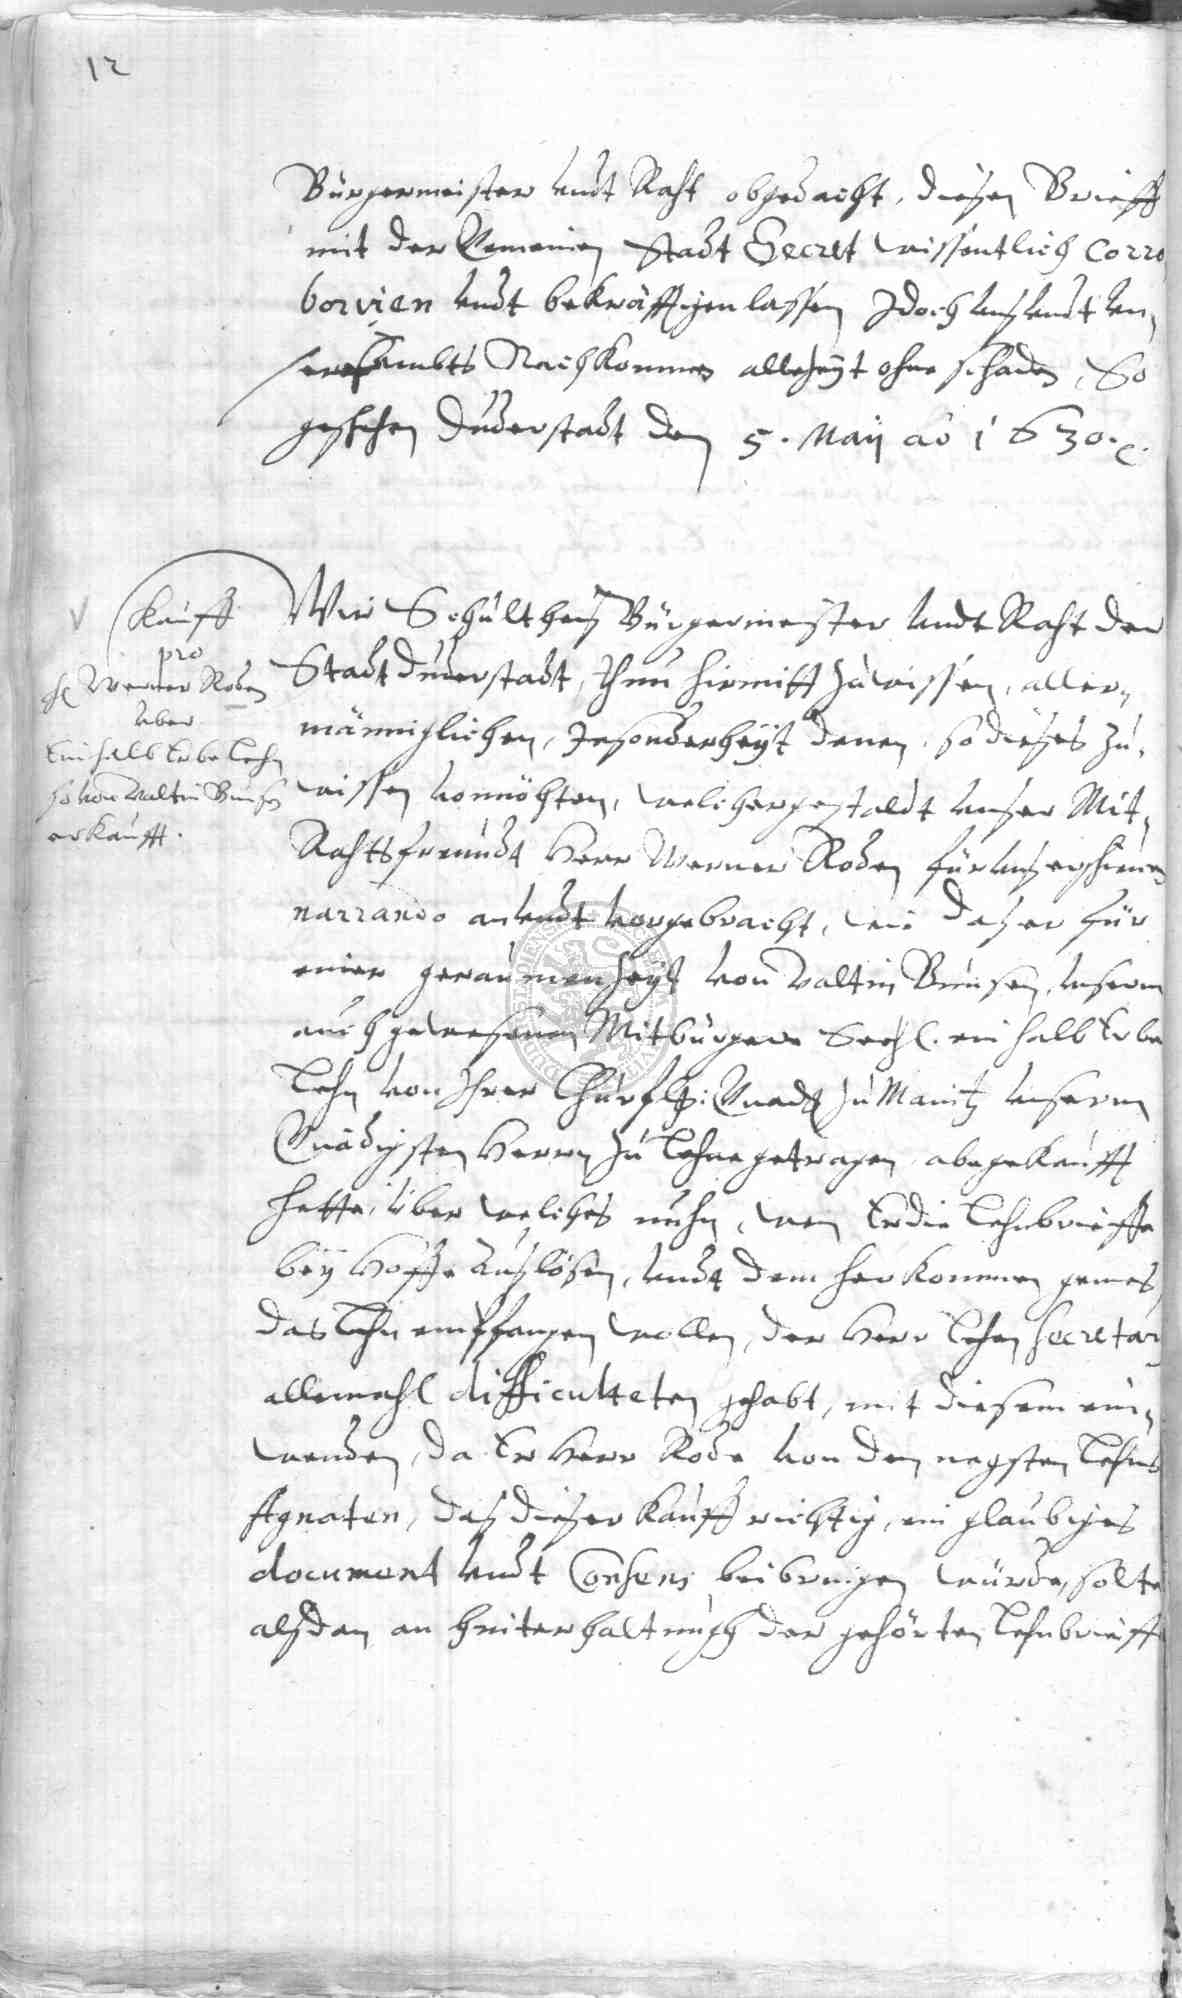 12
Bürgermeister undt Raht obgedacht, diesen Brieff
mit der Gemeinen Stadt Secret wissentlich corro
borirn undt bekräfftigen lassen Jdoch uns undt un,
sern Ambts Nachkommen allezeyt ohne schaden, So
geschehen Duderstadt den 5. Maij ao 1630.
Kauff
pro
H Werner Roden
uber
Ein halb Erbe Lehn
so von Valtin Bunsen
erkaufft.
Wir Schultheis Bürgermeister undt Raht der
Stadt Duderstadt, Thun hirmitt zu wissen, aller,
männiglichen, Jnsonderheyt denen, so dieses zu,
wissen vonnöhten, welchergestaldt unser Mit,
Rahtsfreundt Herr Werner Roden für uns erschienen
narrando an undt vorgebracht, wie daß er für
einer geraumen Zeyt von Valtin Bunsen, unserm
auch gewesenen Mitbürgern Seehl. ein halb Erbe
Lehn von Jhrer Churfl: Gnad zu Maintz unserm
Gnädigsten Herrn zu Lehne getragen abgekaufft
hette, über welches nuhn, wen Er die Lehnbrieffe
bey Hoffe Auslösen, undt dem herkommen gemeß
das Lehn empfangen wollen, der Herr Lehen Secretar
allemahl difficulteten gehabt, mit diesem ein,
wenden, da Er Herr Rode von den negsten Lehns
Agnaten, daß dieser Kauff richtig, ein glaubiges
document undt Consens beibringen würde, solte
alßdan an hinterhaltung der gehörten Lehnbrieff